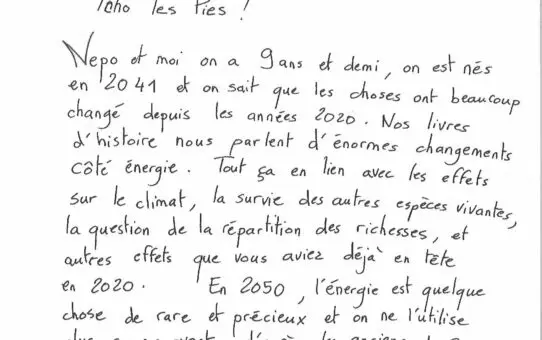 Tcho les Pies !
Nepo et moi on a 9 ans et demi, on est nés
en 2041 et on sait que les choses ont beaucoup
changé depuis les années 2020. Nos livres
d'histoire nous parlent d'énormes changements
côté énergie. Tout ça en lien avec les effets
sur le climat, la survie des autres espèces vivantes,
la question de la répartition des richesses, et
autres effets que vous aviez déjà en tête
en 2020. En 2050, l'énergie est quelque
chose de rare et précieux et on ne l'utilise